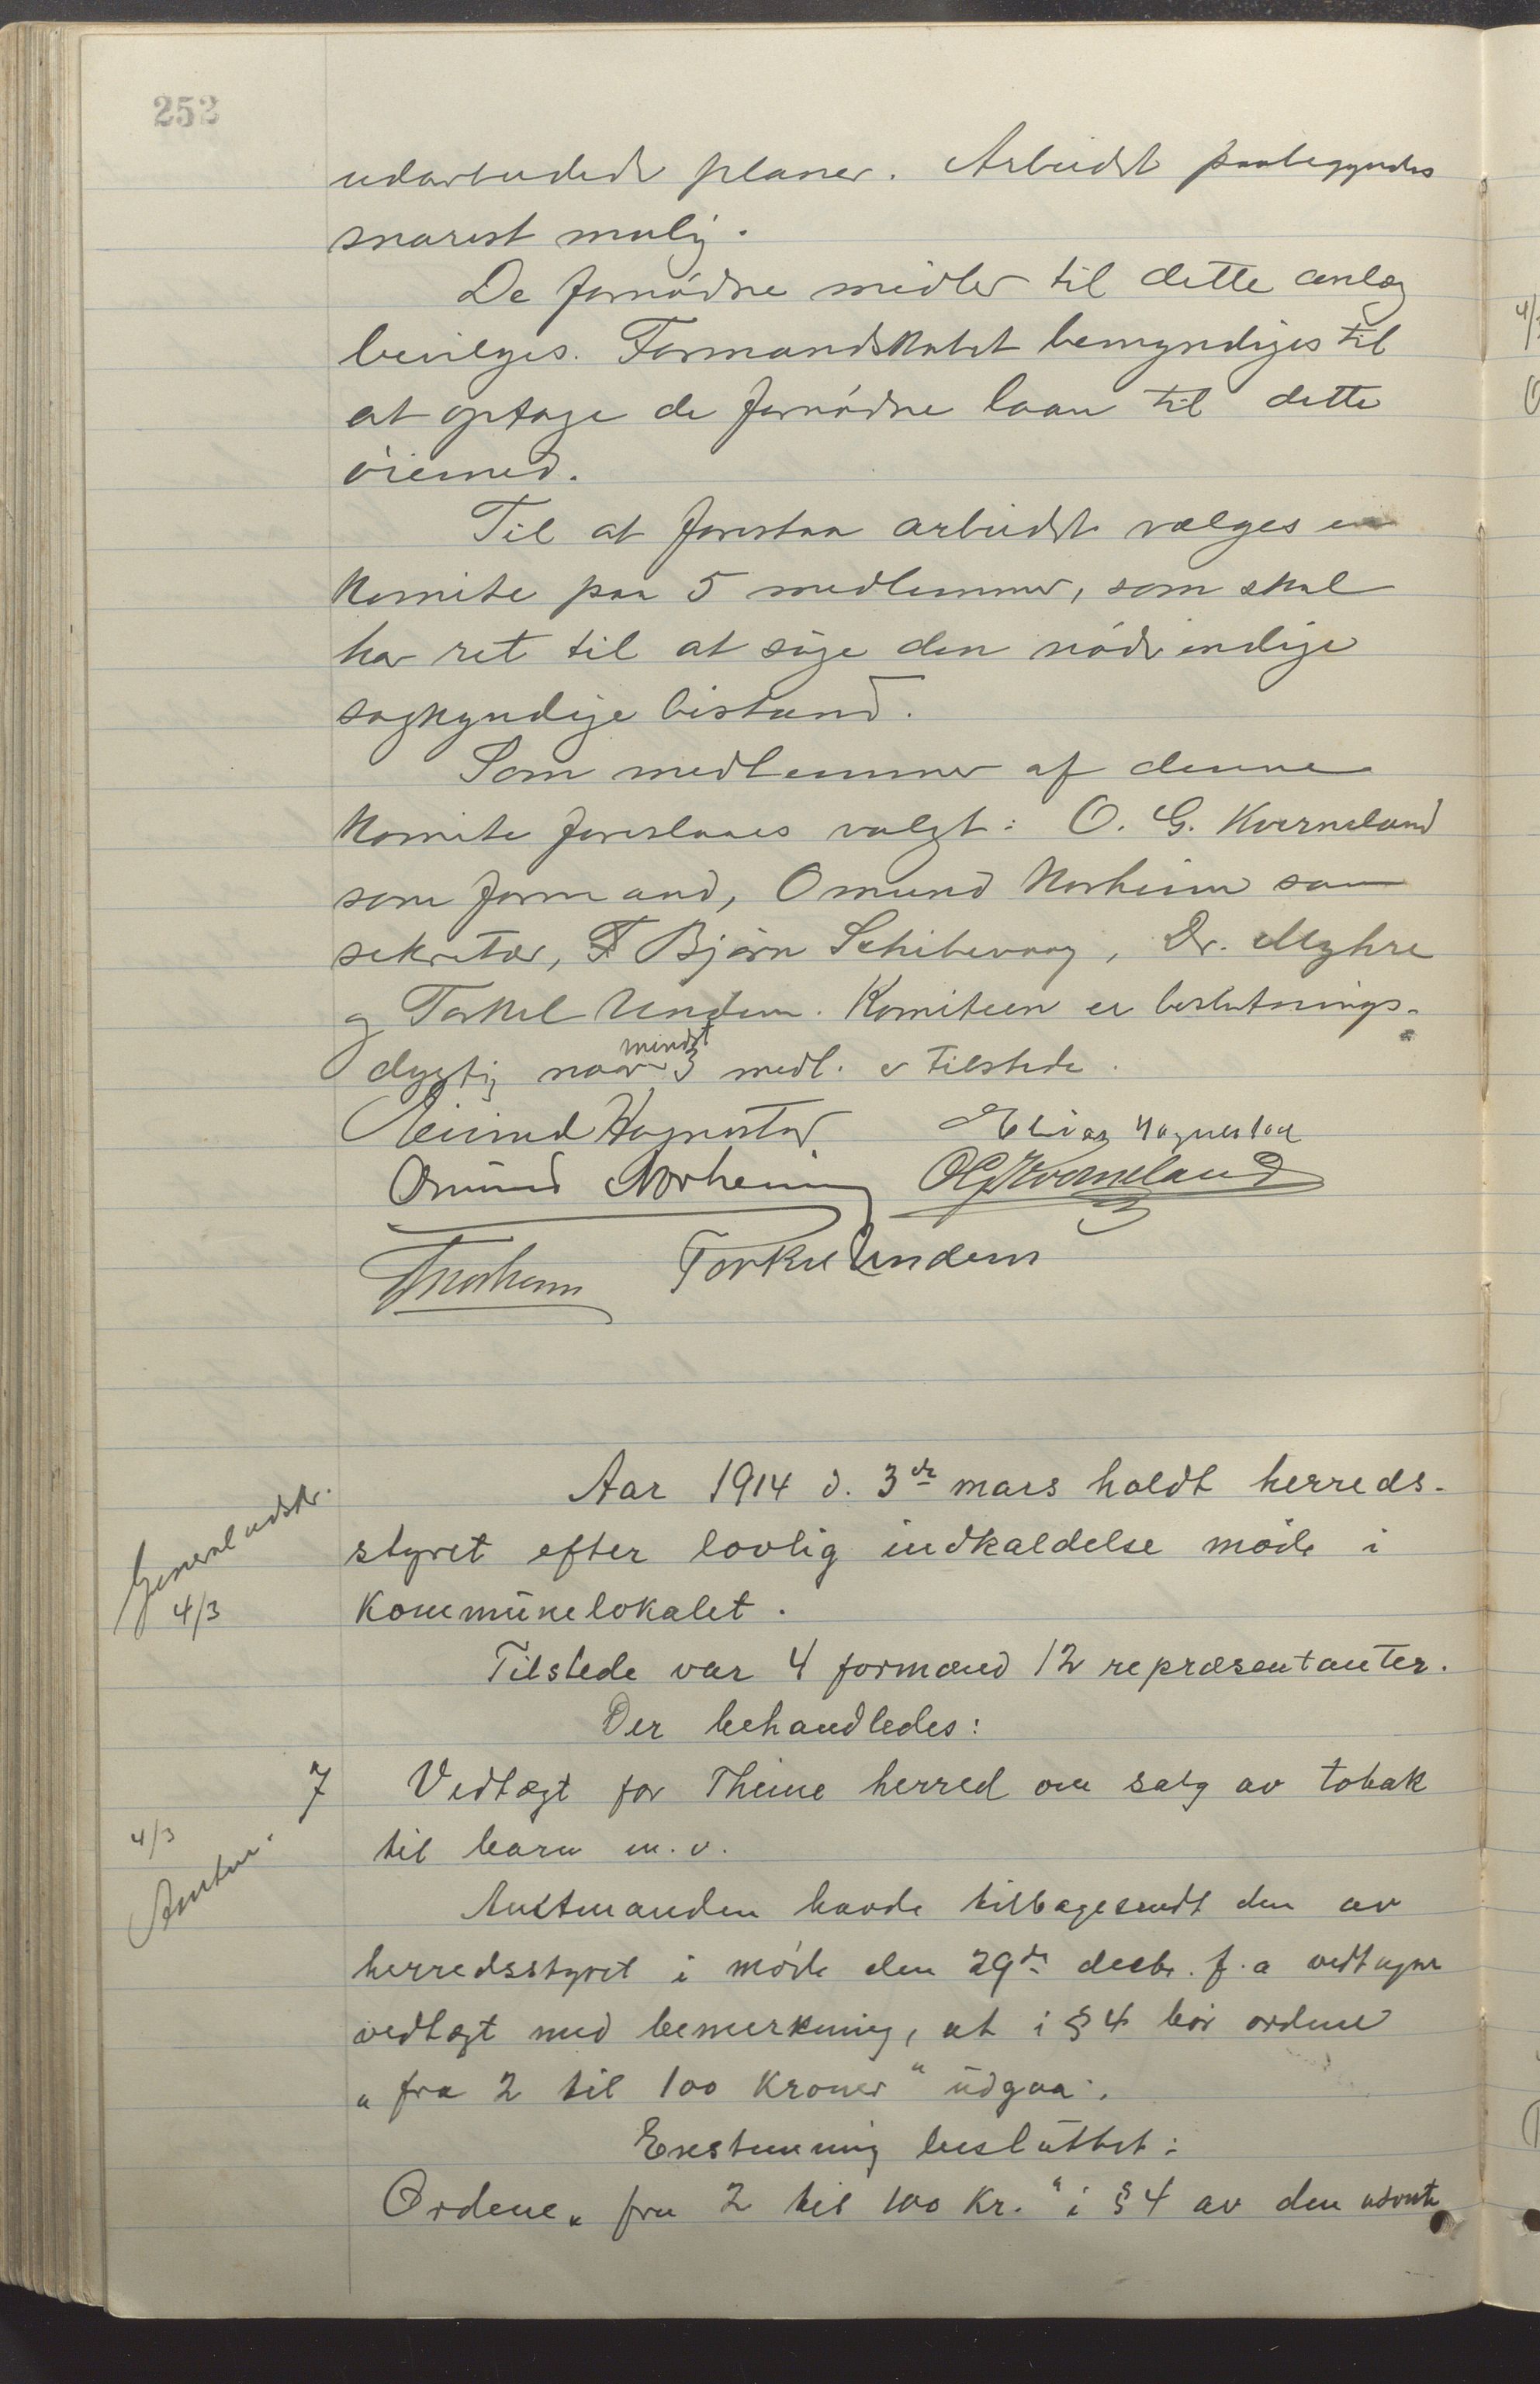 252
udarbeidede planer. Arbeidet paabegyndes
snarest mulig.
De fornødne midler til dette anlæg
bevilges. Formandskabet bemyndiges til
at optage de fornødne laan til dette
øiemed.
Til at forestaa arbeidet vælges en
komite paa 5 medlemmer, som skal
ha ret til at søge den nødvendige
sagkyndige bistand.
Som medlemmer af denne
komite foreslaaes valgt: O. G. Kverneland
som formand, Omund Norheim som
sekretær, Bjørn Schibevaag, Dr. Myhre
og Torkel Undem. Komiteen er beslutnings-
dygtig naar mindst 3 medl. er tilstede.
Eivind Hagnestad Elias Hognestad
Omund Norheim OG Kverneland
Norheim Torkel Undem
Aar 1914 d. 3de mars holdt herreds-
styret efter lovlig indkaldelse møde i
kommunelokalet.
Generaludskr.
4/3
Tilstede var 4 formænd 12 repræsentanter.
Der behandledes:
7 Vedtægt for Thime herred om salg av tobak
til barn m.v.
4/3
Amtm.
Amtmanden havde tilbagesendt den av
herredsstyret i møde den 29de decbr. f.a vedtagne
vedtægt med bemerkning, at i § 4 bør ordene
"fra 2 til 100 kroner" udgaa.
Enstemmig besluttet:
Ordene "fra 2 til 100 kr." i § 4 av den